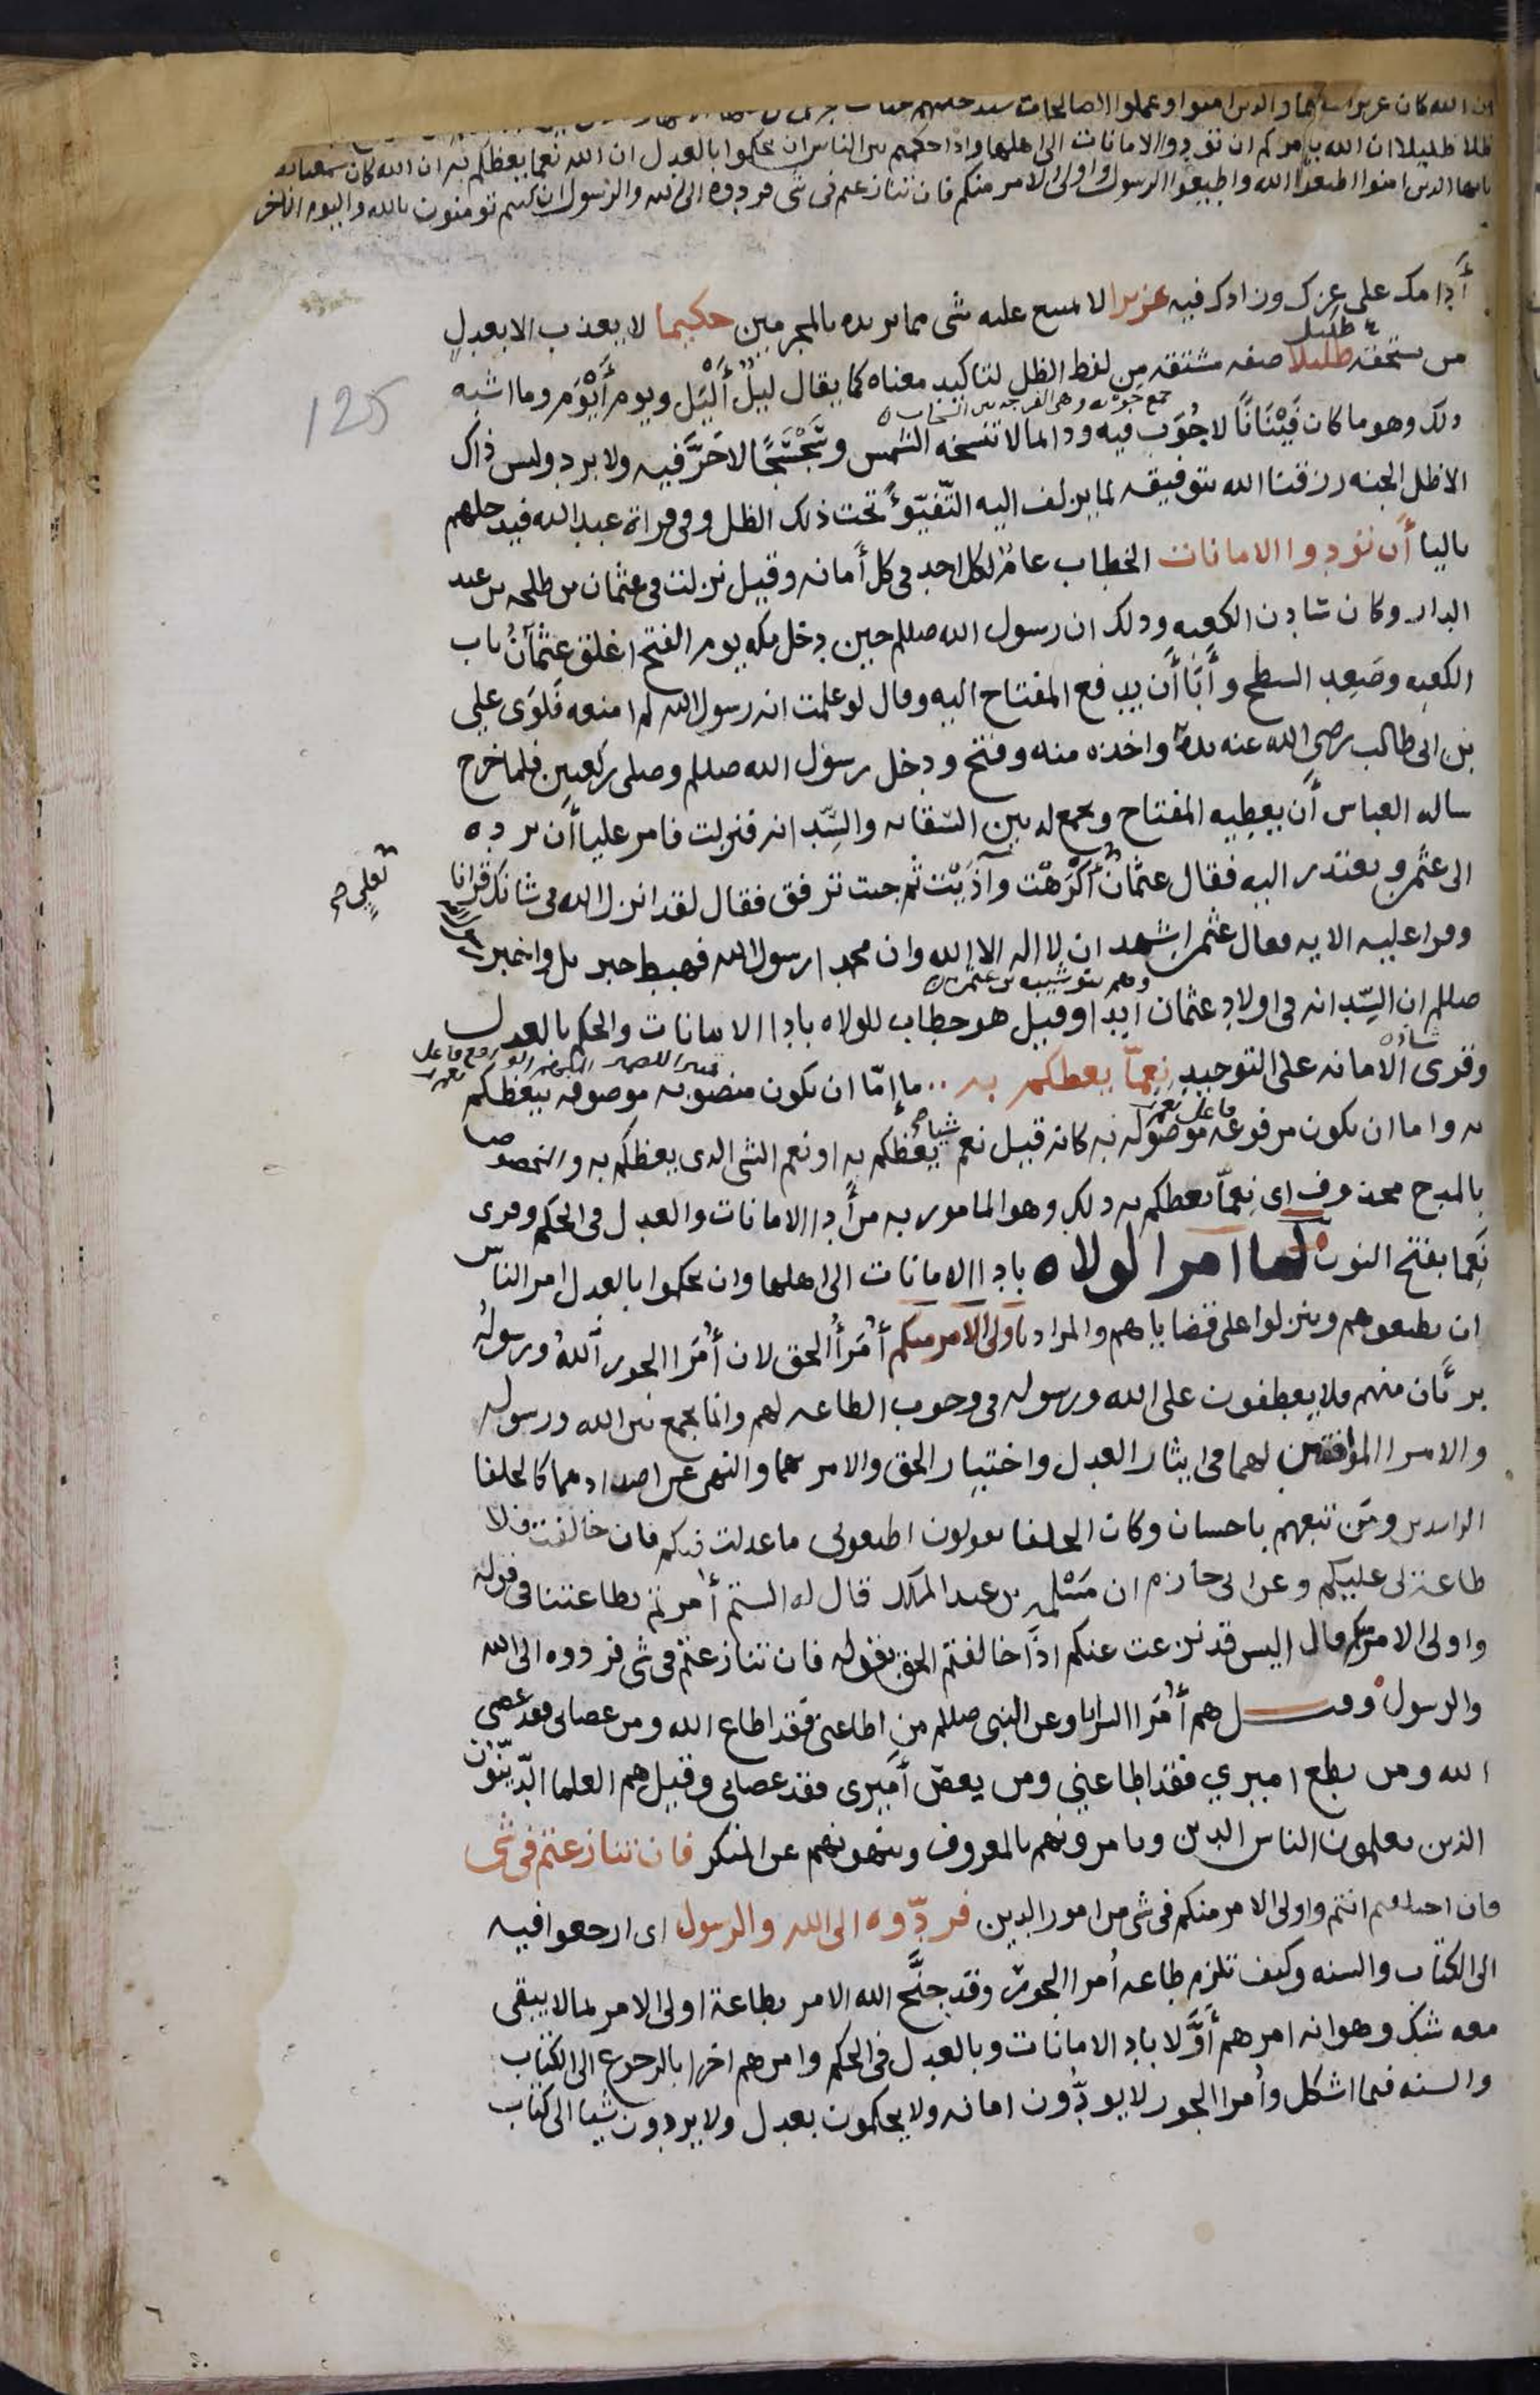 ان الله كان عزيزا حكيما والدين امنوا وعملوا الصالحات سندخلهم جنات
ظلا ظليلا ان الله يامركم ان تؤدوا الامانات الى اهلها واذا حكمتم بين الناس ان تحكموا بالعدل ان الله نعما يعظكم به ان الله كان سميعا
يايها الدين امنوا اطيعوا الله واطيعوا الرسول واولى الامر منكم فان تنازعتم فى شى فردوه الى الله والرسول ان كنتم تومنون بالله واليوم الاخر
أدامك على عزك وزادك فيه عزيزا لا يمتنع عليه شى مما يريده بالمجرمين حكيما لا يعذب الا بعدل
من يستحقه ظليلا صفه مشتقه من لفظ الظل لتاكيد معناه كما يقال ليل أليل ويوم أيوم وما اشبه
جمع جوبه وهى الفرجه بين السحاب
ذلك وهو ما كان فينانا لا جوب فيه ودايما لا تنسخه الشمس وسجسجا لا حر فيه ولا برد وليس ذاك
الا ظل الجنه رزقنا الله بتوفيقه لما يزلف اليه التفيؤ تحت ذلك الظل وفى قراة عبد الله فيدخلهم
125
باليا أن تؤدوا الامانات الخطاب عام لكل احد فى كل أمانه وقيل نزلت فى عثمان بن طلحه بن عبد
الدار وكان سادن الكعبه وذلك ان رسول الله صللم حين دخل مكه يوم الفتح اغلق عثمان باب
الكعبه وصعد السطح وأبا أن يدفع المفتاح اليه وقال لو علمت انه رسول الله لم امنعه فلوى علي
بن ابى طالب رضى الله عنه يده واخذه منه وفتح ودخل رسول الله صللم وصلى ركعتين فلما خرج
ساله العباس أن يعطيه المفتاح ويجمع له بين السقايه والسدانه فنزلت فامر عليا أن يرده
الى عثمن ويعتذر اليه فقال عثمان أكرهت وآذيت ثم جيت ترفق فقال لقد انزل الله فى شانك قرانا
لعلي صح
وقرا عليه الايه فقال عثمن اشهد ان لا اله الا الله وان محمدا رسول الله فهبط جبريل واخبر
وهم بنو شيبه بن عثمن
صللم ان السدانه فى اولاد عثمان ابدا وقيل هو خطاب للولاه بادا الامانات والحكم بالعدل
شاذه
وقرى الامانه على التوحيد نعما يعظكم به ما إما ان يكون منصوبه موصوفه بيعظكم
فاعل نعم
به واما ان يكون مرفوعه موصوله به كانه قيل نعم شيا يعظكم به او نعم الشى الدى يعظكم به والمخصوص
بالمدح محذوف اى نعما يعظكم به ذلك وهو المامور به من أدا الامانات والعدل فى الحكم وقرى
نعما بفتح النون لما امر الولاه بادا الامانات الى اهلها وان يحكموا بالعدل امر الناس
ان يطيعوهم وينزلوا على قضاياهم والمراد باولى الامر منكم أمرأ الحق لان أمرا الجور الله ورسوله
بريان منهم فلا يعطفون على الله ورسوله فى وجوب الطاعه لهم وانما يجمع بين الله ورسوله
والامرا الموافقين لهما فى ايثار العدل واختيار الحق والامر بهما والنهى عن اضدادهما كالخلفا
الراشدين ومن تبعهم باحسان وكان الخلفا يقولون اطيعونى ما عدلت فيكم فان خالفت فلا
طاعة لى عليكم وعن ابى حازم ان مسلمه بن عبد الملك قال له الستم أمرتم بطاعتنا فى قوله
واولى الامر منكم قال اليس قد نزعت عنكم اذا خالفتم الحق بقوله فان تنازعتم فى شى فردوه الى الله
والرسول وقيل هم أمرا السرايا وعن النبى صللم من اطاعنى فقد اطاع الله ومن عصانى فقد عصى
الله ومن يطع اميري فقد اطاعني ومن يعص أميرى فقد عصانى وقيل هم العلما الدينون
الذين يعلمون الناس الدين ويامرونهم بالمعروف وينهونهم عن المنكر فان تنازعتم فى شى
فان اختلفتم انتم واولى الامر منكم فى شى من امور الدين فردوه الى الله والرسول اى ارجعوا فيه
الى الكتاب والسنه وكيف تلزم طاعه أمرا الجور وقد جنح الله الامر بطاعة اولى الامر بما لا يبقى
معه شك وهو انه امرهم أولا بادا الامانات وبالعدل فى الحكم وامرهم اخرا بالرجوع الى الكتاب
والسنه فيما اشكل وأمرا الجور لا يودون امانه ولا يحكمون بعدل ولا يردون شيا الى كتاب